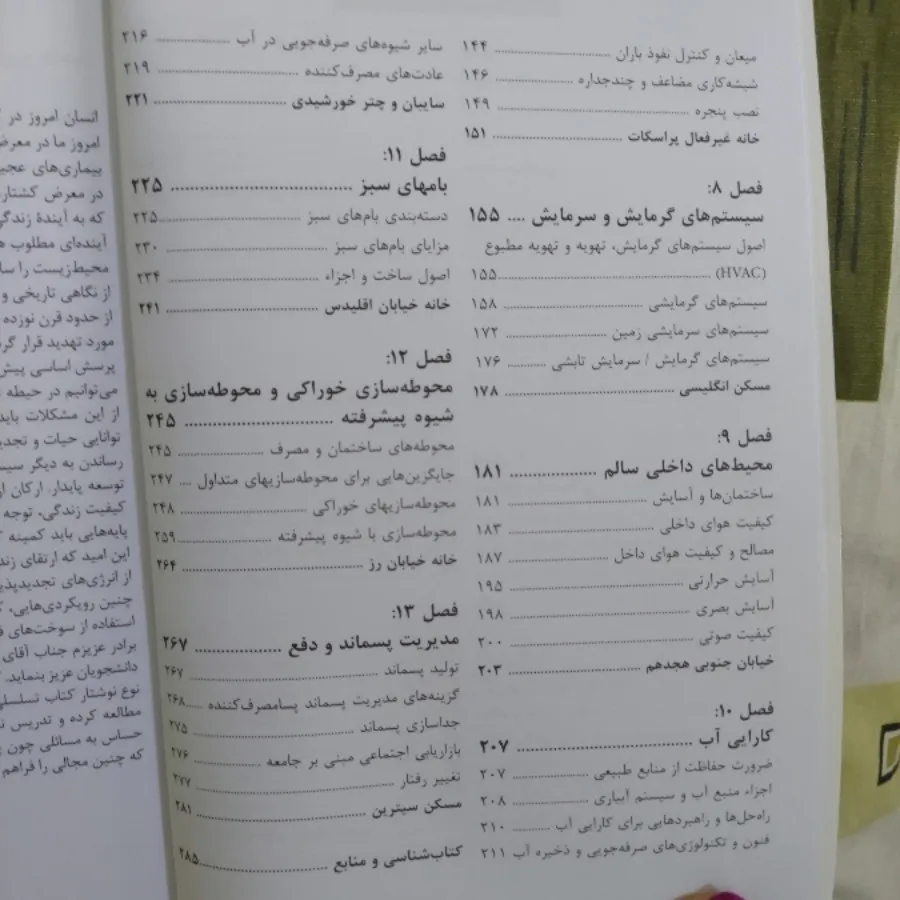 میعان و کنترل نفوذ باران ... ۱۴۴
شیشه‌کاری مضاعف و چندجداره ... ۱۴۶
نصب پنجره ... ۱۴۹
خانه غیرفعال پراسکات ... ۱۵۱
فصل ۸:
سیستم‌های گرمایش و سرمایش .... ۱۵۵
اصول سیستم‌های گرمایش، تهویه و تهویه مطبوع
(HVAC) ... ۱۵۵
سیستم‌های گرمایشی ... ۱۵۸
سیستم‌های سرمایشی زمین ... ۱۷۲
سیستم‌های گرمایش / سرمایش تابشی ... ۱۷۶
مسکن انگلیسی ... ۱۷۸
فصل ۹:
محیط‌های داخلی سالم ... ۱۸۱
ساختمان‌ها و آسایش ... ۱۸۱
کیفیت هوای داخلی ... ۱۸۳
مصالح و کیفیت هوای داخل ... ۱۸۷
آسایش حرارتی ... ۱۹۵
آسایش بصری ... ۱۹۸
کیفیت صوتی ... ۲۰۰
خیابان جنوبی هجدهم ... ۲۰۳
فصل ۱۰:
کارایی آب ... ۲۰۷
ضرورت حفاظت از منابع طبیعی ... ۲۰۷
اجزاء منبع آب و سیستم آبیاری ... ۲۰۸
راه‌حل‌ها و راهبردهایی برای کارایی آب ... ۲۱۰
فنون و تکنولوژی‌های صرفه‌جویی و ذخیره آب ۲۱۱
سایر شیوه‌های صرفه‌جویی در آب ... ۲۱۶
عادت‌های مصرف‌کننده ... ۲۱۹
سایبان و چتر خورشیدی ... ۲۲۱
فصل ۱۱:
بامهای سبز ... ۲۲۵
دسته‌بندی بام‌های سبز ... ۲۲۵
مزایای بام‌های سبز ... ۲۳۰
اصول ساخت و اجزاء ... ۲۳۴
خانه خیابان اقلیدس ... ۲۴۱
فصل ۱۲:
محوطه‌سازی خوراکی و محوطه‌سازی به
شیوه پیشرفته ... ۲۴۵
محوطه‌های ساختمان و مصرف ... ۲۴۵
جایگزین‌هایی برای محوطه‌سازیهای متداول ... ۲۴۷
محوطه‌سازیهای خوراکی ... ۲۴۸
محوطه‌سازی با شیوه پیشرفته ... ۲۵۹
خانه خیابان رز ... ۲۶۴
فصل ۱۳:
مدیریت پسماند و دفع ... ۲۶۷
تولید پسماند ... ۲۶۷
گزینه‌های مدیریت پسماند پسامصرف‌کننده ... ۲۶۸
جداسازی پسماند ... ۲۷۵
بازاریابی اجتماعی مبنی بر جامعه ... ۲۷۶
تغییر رفتار ... ۲۷۷
مسکن سیترین ... ۲۸۱
کتاب‌شناسی و منابع ... ۲۸۵
انسان امروز در
امروز ما در معرض
بیماری‌های
در معرض کشتار
که به آیندهٔ
آینده‌ای مطلوب
محیط‌زیست را
از نگاهی تاریخی و
از حدود قرن نوزده
مورد تهدید قرار
پرسش اساسی پیش
می‌توانیم در حیطه
از این مشکلات باید
توانایی حیات و
رساندن به دیگر
توسعه پایدار. ارکان
کیفیت زندگی، توجه
پایه‌هایی باید کمینه
این امید که ارتقای
از انرژی‌های
چنین رویکردی‌هایی،
استفاده از سوخت‌های
برادر عزیزم جناب آقای
دانشجویان عزیز بنماید.
نوع نوشتار کتاب
مطالعه کرده و تدریس
حساس به مسائلی چون
که چنین مجالی را فراهم